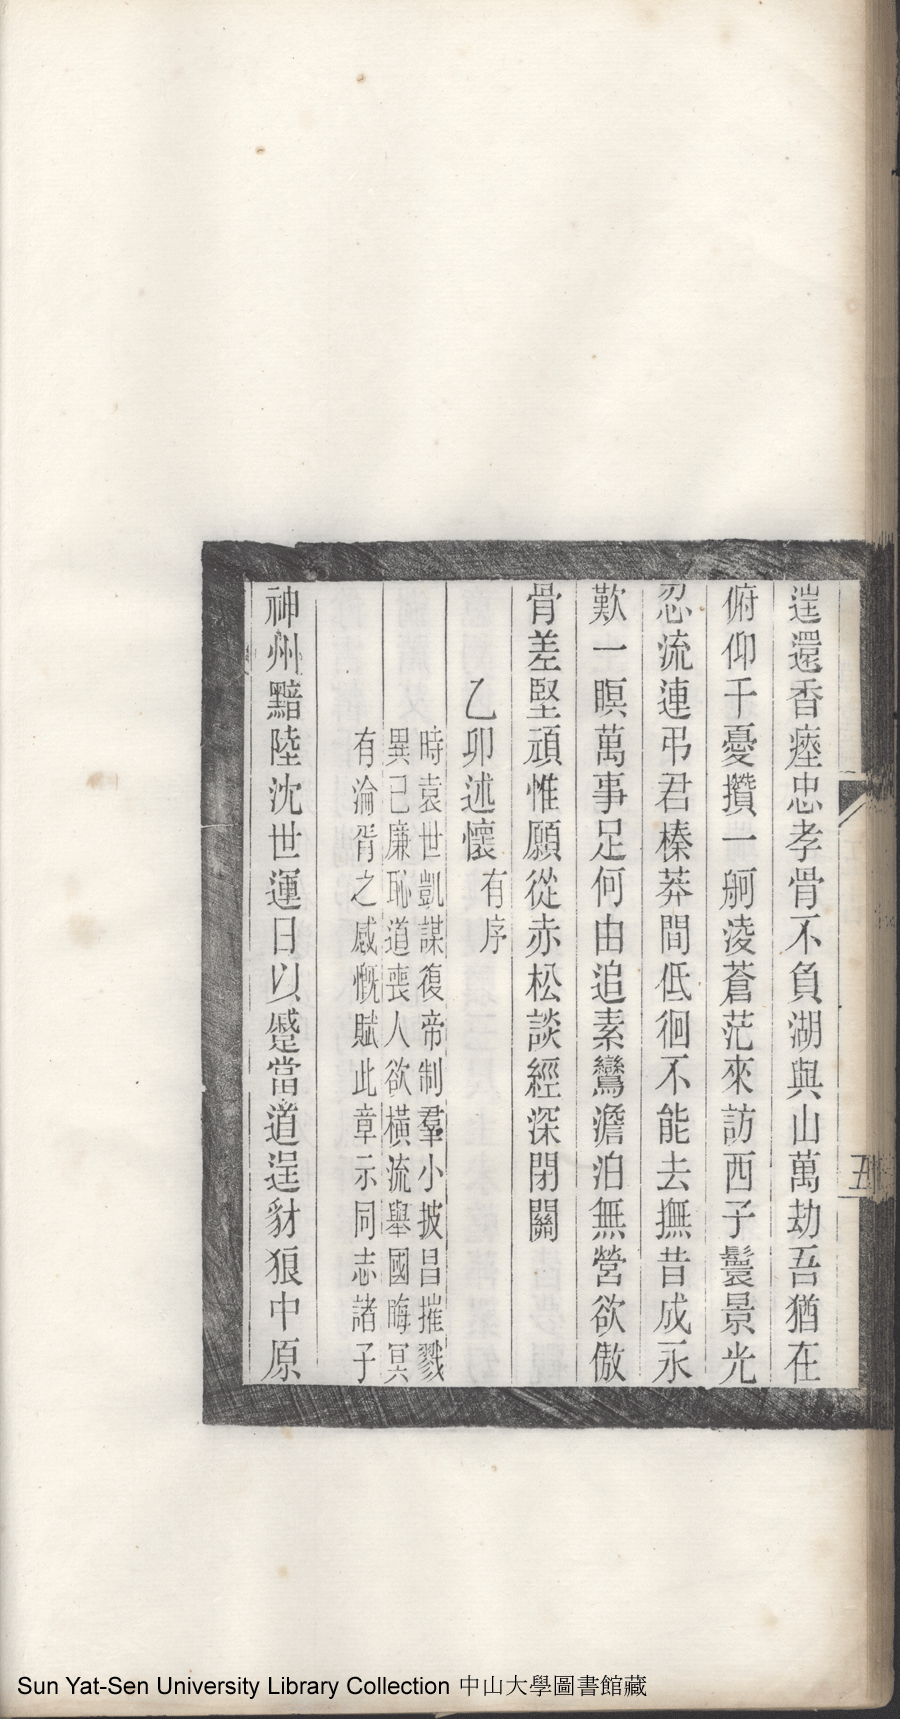 還香瘞忠孝骨不負湖與山萬劫吾猶在
俯仰千憂攢一舸淩蒼茫來訪西子鬟景光
忍流連弔君榛莽間低徊不能去撫昔成永
歎一瞑萬事足何由追素鸞澹泊無營欲傲
骨差堅頑惟願從赤松談經深閉關
乙卯述懷 有序
時袁世凱謀復帝制羣小披昌摧戮
異己廉恥道喪人欲橫流舉國晦冥
有淪胥之感慨賦此章示同志諸子
神州黯陸沈世運日以蹙當道逞豺狼中原
五
Sun Yat-Sen University Library Collection 中山大學圖書館藏